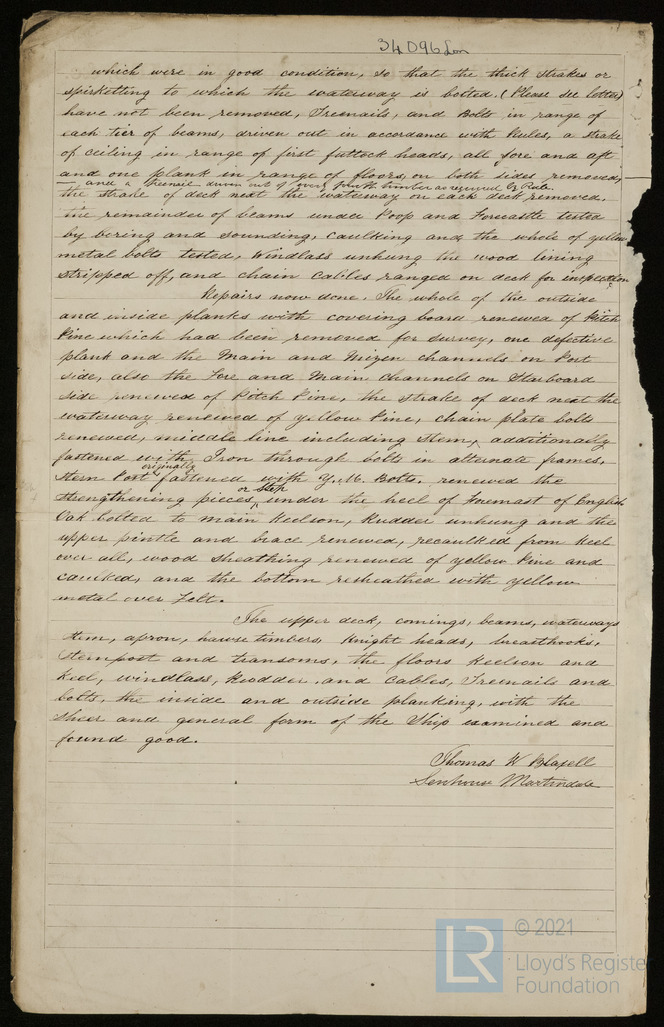 34096 Lon
which were in good condition, so that the thick strakes or
spirketting to which the waterway is bolted. (Please see letter)
have not been removed, Treenails, and Bolts in range of
each tier of beams, driven out in accordance with Rules, a strake
of ceiling in range of first futtock heads, all fore and aft
and one plank in range of floors, on both sides removed,
and a treenail driven out of every fourth timber as required by Rule.
the strake of deck next the waterway on each deck removed.
the remainder of beams under Poop and Forecastle tested
by boring and sounding, caulking and the whole of yellow
metal bolts tested, Windlass unhung the wood lining
stripped off, and chain cables ranged on deck for inspection
Repairs now done. The whole of the outside
and inside planks with covering board renewed of Pitch
Pine which had been removed for survey, one defective
plank and the Main and Mizen channels on Port
side, also the Fore and Main Channels on Starboard
side renewed of Pitch Pine, the strake of deck next the
waterway renewed of yellow Pine, chain plate bolts
renewed, middle line including stem, additionally
fastened with Iron through bolts in alternate frames,
originally
Stern Post fastened with Y. M. Bolts. renewed the
or step
strengthening pieces, under the heel of Foremast of English
Oak bolted to main Keelson, Rudder unhung and the
upper pintle and brace renewed, recaulked from Keel
over all, wood sheathing renewed of yellow Pine and
caulked, and the bottom resheathed with yellow
metal over Felt.
The upper deck, comings, beams, waterways
stem, apron, hawse timbers, Knight heads, breasthooks,
sternpost and transoms, the floors Keelson and
Keel, windlass, Rudder, and Cables, Treenails and
bolts, the inside and outside planking, with the
sheer and general form of the Ship examined and
found good.
Thomas W Blaxell
Senhouse Martindale
LR
© 2021
Lloyd's Register
Foundation